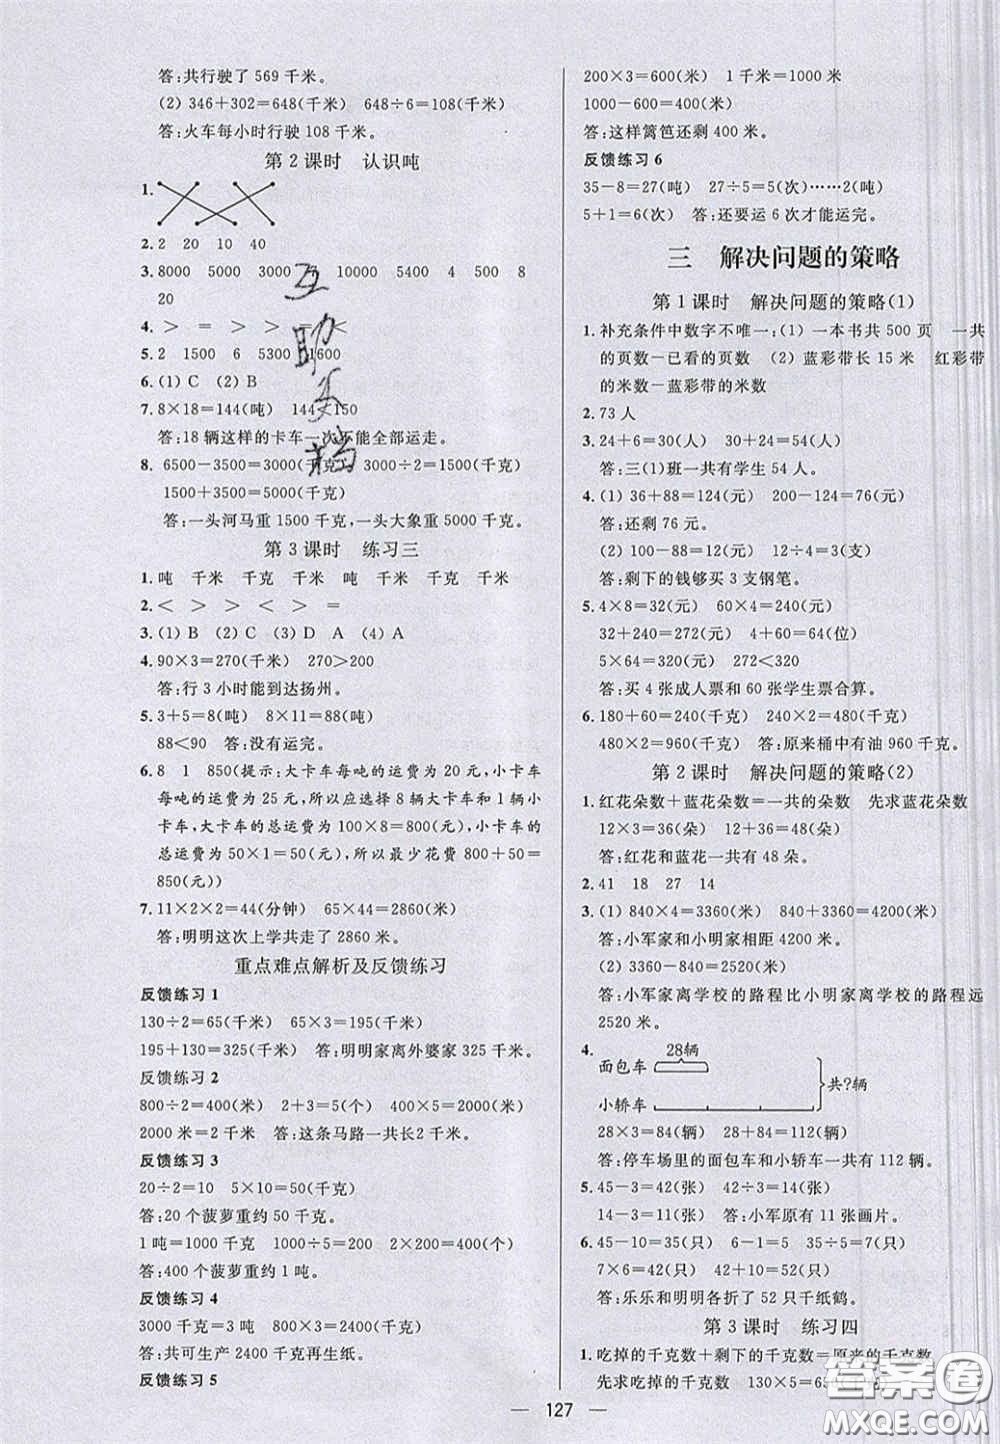 答:共行驶了 569 千米。
(2) 346+302=648(千米) 648÷6=108(千米)
答:火车每小时行驶 108 千米。
第 2 课时 认识吨
1.
2. 2 20 10 40
3. 8000 5000 3000 7 10000 5400 4 500 8
20
4. > = > > = <
5. 2 1500 6 5300 1600
6. (1) C (2) B
7. 8×18=144(吨) 144<150
答:18 辆这样的卡车一次不能全部运走。
8. 6500-3500=3000(千克) 3000÷2=1500(千克)
1500+3500=5000(千克)
答:一头河马重 1500 千克,一头大象重 5000 千克。
第 3 课时 练习三
1. 吨 千米 千克 千米 吨 千米 千克 千米
2. < > > < > =
3. (1) B (2) C (3) D A (4) A
4. 90×3=270(千米) 270>200
答:行 3 小时能到达扬州。
5. 3+5=8(吨) 8×11=88(吨)
88<90 答:没有运完。
6. 8 1 850(提示:大卡车每吨的运费为 20 元,小卡车
每吨的运费为 25 元,所以应选择 8 辆大卡车和 1 辆小
卡车,大卡车的总运费为 100×8=800(元),小卡车的
总运费为 50×1=50(元),所以最少花费 800+50=
850(元))
7. 11×2×2=44(分钟) 65×44=2860(米)
答:明明这次上学共走了 2860 米。
重点难点解析及反馈练习
反馈练习 1
130÷2=65(千米) 65×3=195(千米)
195+130=325(千米) 答:明明家离外婆家 325 千米。
反馈练习 2
800÷2=400(米) 2+3=5(个) 400×5=2000(米)
2000 米=2 千米 答:这条马路一共长2 千米。
反馈练习 3
20÷2=10 5×10=50(千克)
答:20 个菠萝重约 50 千克。
1 吨=1000 千克 1000÷5=200 2×200=400(个)
答:400 个菠萝重约 1 吨。
反馈练习 4
3000 千克=3 吨 800×3=2400(千克)
答:共可生产 2400 千克再生纸。
反馈练习 5
200×3=600(米) 1 千米=1000 米
1000-600=400(米)
答:这样篱笆还剩 400 米。
反馈练习 6
35-8=27(吨) 27÷5=5(次)……2(吨)
5+1=6(次) 答:还要运 6 次才能运完。
三 解决问题的策略
第 1 课时 解决问题的策略(1)
1. 补充条件中数字不唯一:(1) 一本书共 500 页 一共
的页数-已看的页数 (2) 蓝彩带长 15 米 红彩带
的米数-蓝彩带的米数
2. 73 人
3. 24+6=30(人) 24+30=54(人)
答:三(1)班一共有学生 54 人。
4. (1) 36+88=124(元) 200-124=76(元)
答:还剩 76 元。
(2) 100-88=12(元) 12÷4=3(支)
答:剩下的钱够买 3 支钢笔。
5. 4×8=32(元) 60×4=240(元)
32+240=272(元) 4+60=64(位)
5×64=320(元) 272<320
答:买 4 张成人票和 60 张学生票合算。
6. 180+60=240(千克) 240×2=480(千克)
480×2=960(千克) 答:原来桶中有油 960 千克。
第 2 课时 解决问题的策略(2)
1. 红花朵数+蓝花朵数=一共的朵数 先求蓝花朵数
12×3=36(朵) 12+36=48(朵)
答:红花和蓝花一共有 48 朵。
2. 41 18 27 14
3. (1) 840×4=3360(米) 840+3360=4200(米)
答:小军家和小明家相距 4200 米。
(2) 3360-840=2520(米)
答:小军家离学校的路程比小明家离学校的路程远
2520 米。
4. 28辆
面包车
共?辆
小轿车
28×3=84(辆) 28+84=112(辆)
答:停车场里的面包车和小轿车一共有 112 辆。
5. 45-3=42(张) 42÷3=14(张)
14-3=11(张) 答:小军原有 11 张画片。
6. 45-10=35(只) 6-1=5 35÷5=7(只)
7×6=42(只) 42+10=52(只)
答:乐乐和明明各折了 52 只千纸鹤。
第 3 课时 练习四
1. 吃掉的千克数+剩下的千克数=原来的千克数
先求吃掉的千克数 130×5=650(千克)
127
互
助
文
档
答案圈
MXQE.COM